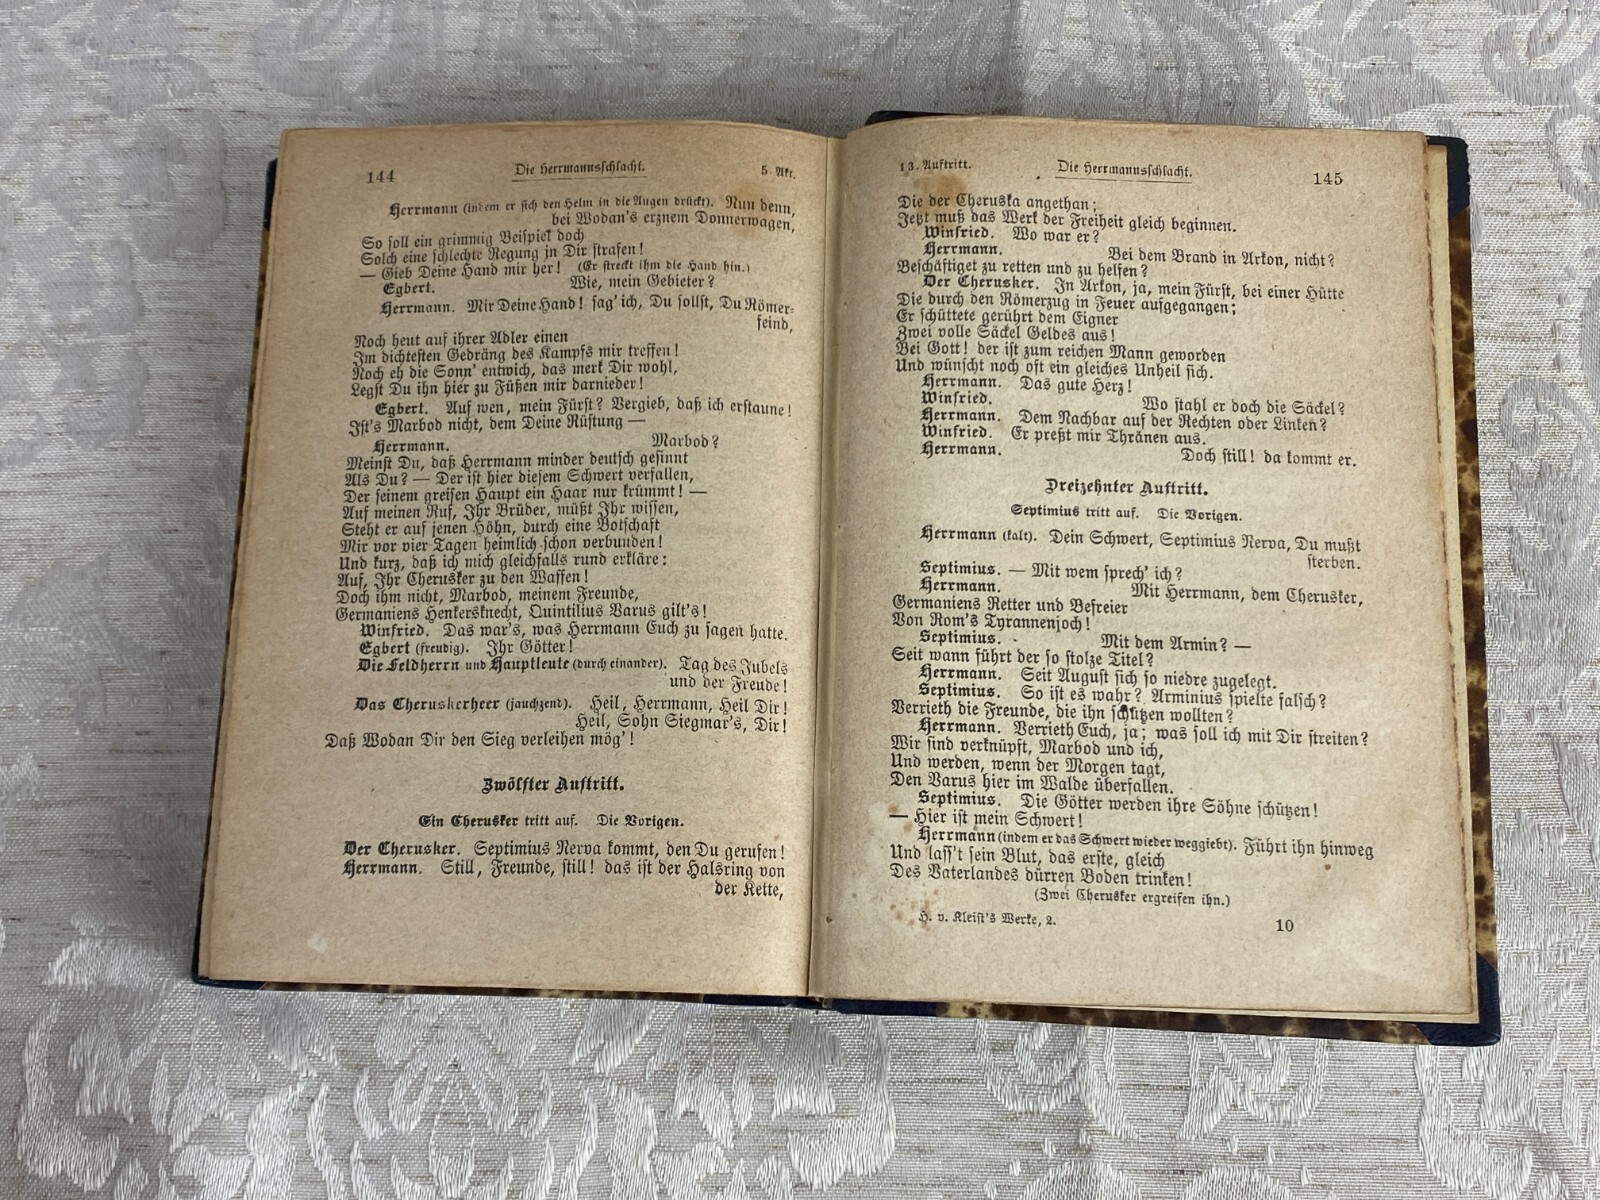 144 Die Herrmannsschlacht. 5. Akt.
Herrmann (indem er sich den Helm in die Augen drückt). Nun denn,
bei Wodan's erznem Donnerwagen,
So soll ein grimmig Beispiel doch
Solch eine schlechte Regung in Dir strafen!
— Gieb Deine Hand mir her! (Er streckt ihm die Hand hin.)
Egbert. Wie, mein Gebieter?
Herrmann. Mir Deine Hand! sag' ich, Du sollst, Du Römer-
feind,
Noch heut auf ihrer Adler einen
Im dichtesten Gedräng des Kampfs mir treffen!
Noch eh die Sonn' entwich, das merk Dir wohl,
Legst Du ihn hier zu Füßen mir darnieder!
Egbert. Auf wen, mein Fürst? Vergieb, daß ich erstaune!
Ist's Marbod nicht, dem Deine Rüstung —
Herrmann. Marbod?
Meinst Du, daß Herrmann minder deutsch gesinnt
Als Du? — Der ist hier diesem Schwert verfallen,
Der seinem greisen Haupt ein Haar nur krümmt! —
Auf meinen Ruf, Ihr Brüder, müßt Ihr wissen,
Steht er auf jenen Höhn, durch eine Botschaft
Mir vor vier Tagen heimlich schon verbunden!
Und kurz, daß ich mich gleichfalls rund erkläre:
Auf, Ihr Cherusker zu den Waffen!
Doch ihm nicht, Marbod, meinem Freunde,
Germaniens Henkersknecht, Quintilius Varus gilt's!
Winfried. Das war's, was Herrmann Euch zu sagen hatte.
Egbert (freudig). Ihr Götter!
Die Feldherrn und Hauptleute (durch einander). Tag des Jubels
und der Freude!
Das Cheruskerheer (jauchzend). Heil, Herrmann, Heil Dir!
Heil, Sohn Siegmar's, Dir!
Daß Wodan Dir den Sieg verleihen mög'!
Zwölfter Auftritt.
Ein Cherusker tritt auf. Die Vorigen.
Der Cherusker. Septimius Nerva kommt, den Du gerufen!
Herrmann. Still, Freunde, still! das ist der Halsring von
der Kette,
13. Auftritt. Die Herrmannsschlacht. 145
Die der Cheruska angethan;
Jetzt muß das Werk der Freiheit gleich beginnen.
Winfried. Wo war er?
Herrmann. Bei dem Brand in Arkon, nicht?
Beschäftiget zu retten und zu helfen?
Der Cherusker. In Arkon, ja, mein Fürst, bei einer Hütte
Die durch den Römerzug in Feuer aufgegangen;
Er schüttete gerührt dem Eigner
Zwei volle Säckel Geldes aus!
Bei Gott! der ist zum reichen Mann geworden
Und wünscht noch oft ein gleiches Unheil sich.
Herrmann. Das gute Herz!
Winfried. Wo stahl er doch die Säckel?
Herrmann. Dem Nachbar auf der Rechten oder Linken?
Winfried. Er preßt mir Thränen aus.
Herrmann. Doch still! da kommt er.
Dreizehnter Auftritt.
Septimius tritt auf. Die Vorigen.
Herrmann (kalt). Dein Schwert, Septimius Nerva, Du mußt
sterben.
Septimius. — Mit wem sprech' ich?
Herrmann. Mit Herrmann, dem Cherusker,
Germaniens Retter und Befreier
Von Rom's Tyrannenjoch!
Septimius. Mit dem Armin? —
Seit wann führt der so stolze Titel?
Herrmann. Seit August sich so niedre zugelegt.
Septimius. So ist es wahr? Arminius spielte falsch?
Verrieth die Freunde, die ihn schützen wollten?
Herrmann. Verrieth Euch, ja; was soll ich mit Dir streiten?
Wir sind verknüpft, Marbod und ich,
Und werden, wenn der Morgen tagt,
Den Varus hier im Walde überfallen.
Septimius. Die Götter werden ihre Söhne schützen!
— Hier ist mein Schwert!
Herrmann (indem er das Schwert wieder weggiebt). Führt ihn hinweg
Und lass't sein Blut, das erste, gleich
Des Vaterlandes dürren Boden trinken!
(Zwei Cherusker ergreifen ihn.)
H. v. Kleist's Werke, 2. 10